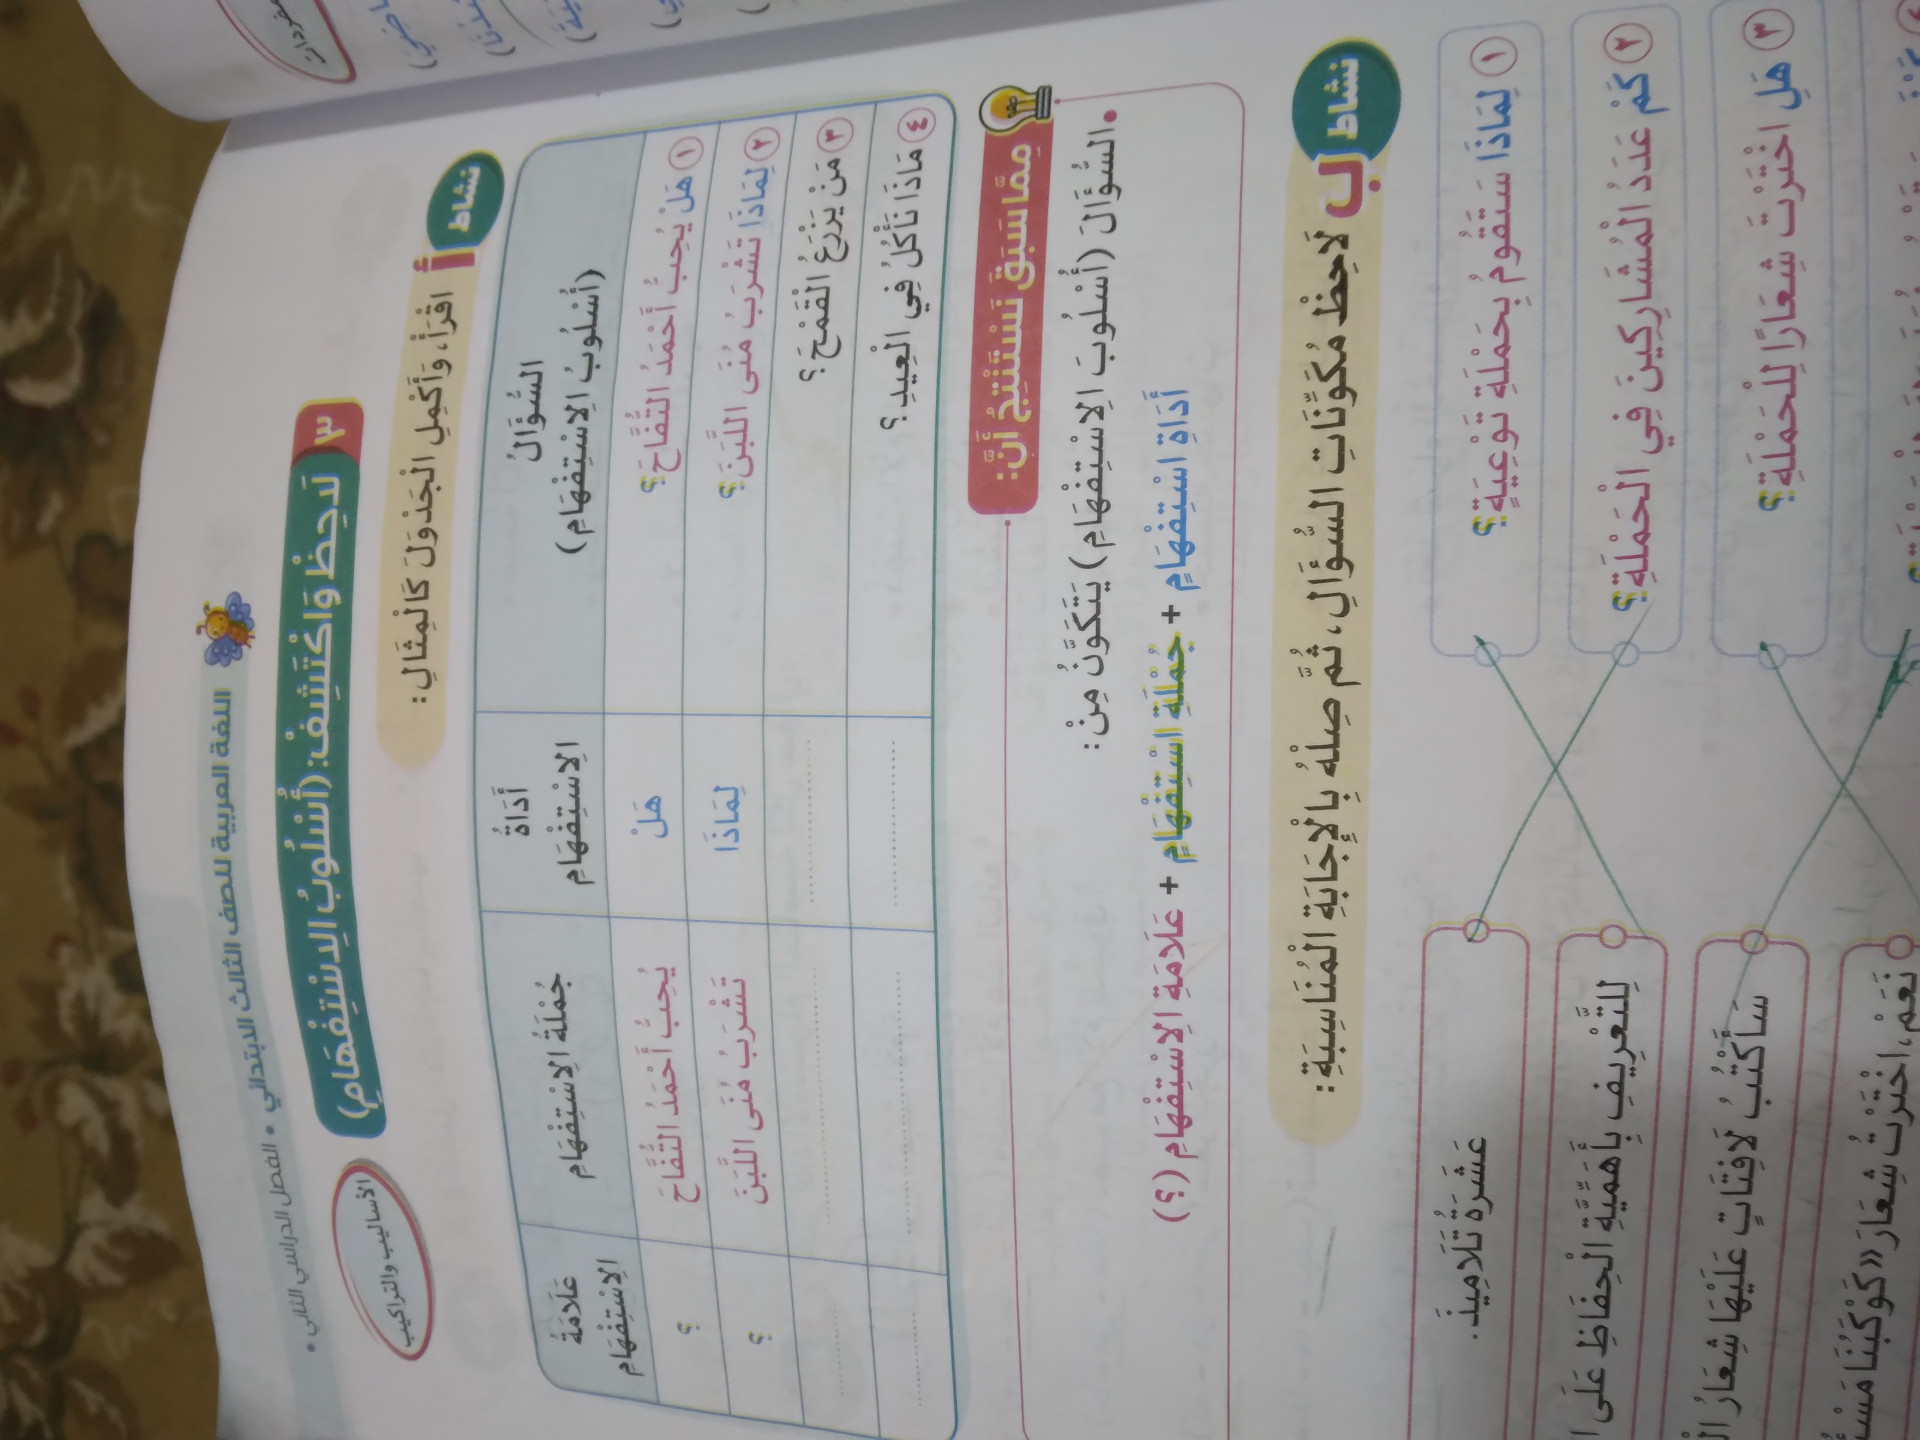 اللغة العربية للصف الثالث الابتدائي • الفصل الدراسي الثاني •
٣ لَاحِظْ وَاكْتَشِفْ: (أُسْلُوبُ الِاسْتِفْهَامِ)
الأساليب والتراكيب
نشاط أ اقْرَأْ، وَأَكْمِلِ الْجَدْوَلَ كَالْمِثَالِ:
السُّؤَالُ (أُسْلُوبُ الِاسْتِفْهَامِ) أَدَاةُ الِاسْتِفْهَامِ جُمْلَةُ الِاسْتِفْهَامِ عَلَامَةُ الِاسْتِفْهَامِ
١ هَلْ يُحِبُّ أَحْمَدُ التُّفَّاحَ؟ هَلْ يُحِبُّ أَحْمَدُ التُّفَّاحَ ؟
٢ لِمَاذَا تَشْرَبُ مُنَى اللَّبَنَ؟ لِمَاذَا تَشْرَبُ مُنَى اللَّبَنَ ؟
٣ مَنْ يَزْرَعُ الْقَمْحَ؟
٤ مَاذَا نَأْكُلُ فِي الْعِيدِ؟
مِمَّا سَبَقَ نَسْتَنْتِجُ أَنَّ:
• السُّؤَالَ (أُسْلُوبَ الِاسْتِفْهَامِ) يَتَكَوَّنُ مِنْ:
أَدَاةِ اسْتِفْهَامٍ + جُمْلَةِ اسْتِفْهَامٍ + عَلَامَةِ الِاسْتِفْهَامِ (؟)
نشاط ب لَاحِظْ مُكَوِّنَاتِ السُّؤَالِ، ثُمَّ صِلْهُ بِالْإِجَابَةِ الْمُنَاسِبَةِ:
١ لِمَاذَا سَتَقُومُ بِحَمْلَةِ تَوْعِيَةٍ؟
عَشَرَةُ تَلَامِيذَ.
٢ كَمْ عَدَدُ الْمُشَارِكِينَ فِي الْحَمْلَةِ؟
لِلتَّعْرِيفِ بِأَهَمِّيَّةِ الْحِفَاظِ عَلَى
٣ هَلِ اخْتَرْتَ شِعَارًا لِلْحَمْلَةِ؟
سَأَكْتُبُ لَافِتَاتٍ عَلَيْهَا شِعَارُ
نَعَمْ، اخْتَرْتُ شِعَارَ «كَوْكَبُنَا